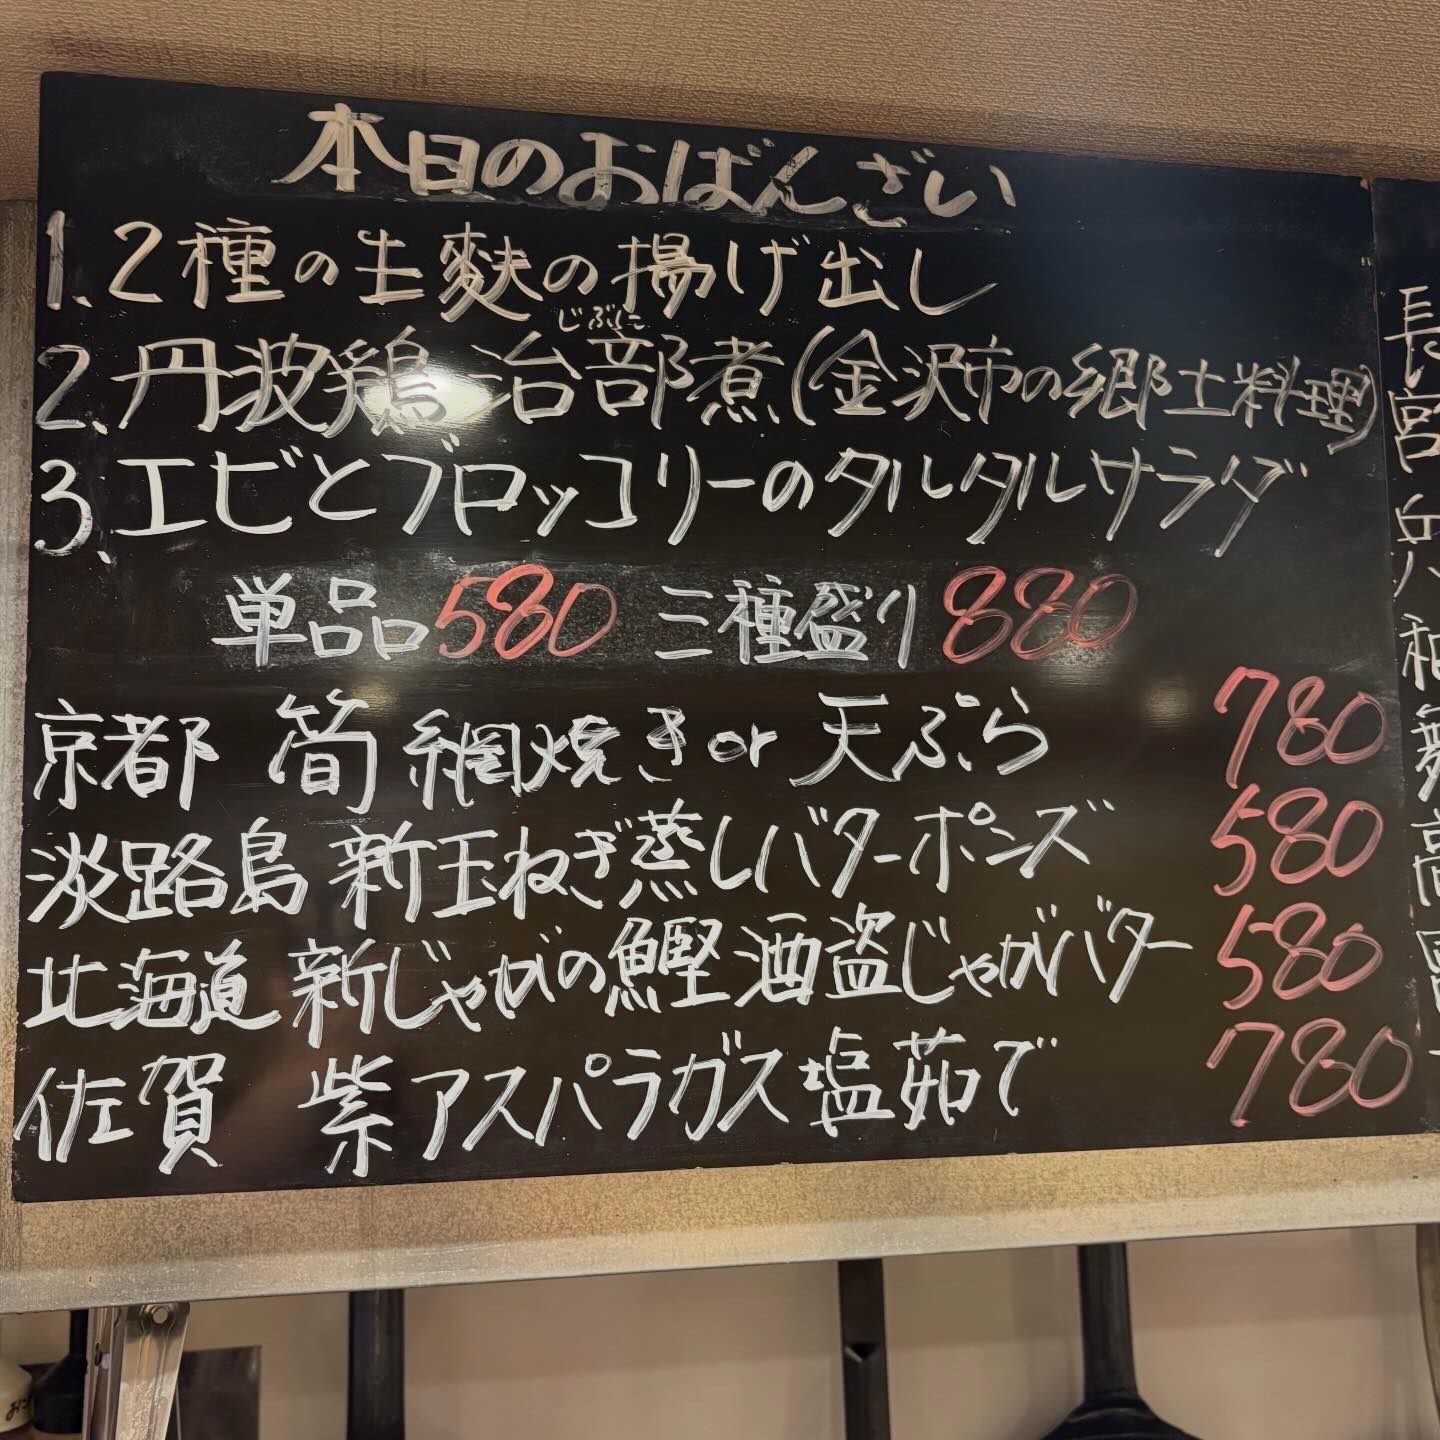 本日のおばんざい
1.2種の生麩の揚げ出し
じぶに
2.丹波鶏 治部煮(金沢市の郷土料理)
3.エビとブロッコリーのタルタルサラダ
単品580 三種盛り880
京都 筍 網焼き or 天ぷら 780
淡路島 新玉ねぎ蒸しバターポンズ 580
北海道 新じゃがの鰹酒盗じゃがバター 580
佐賀 紫アスパラガス塩茹で 780
長
宮